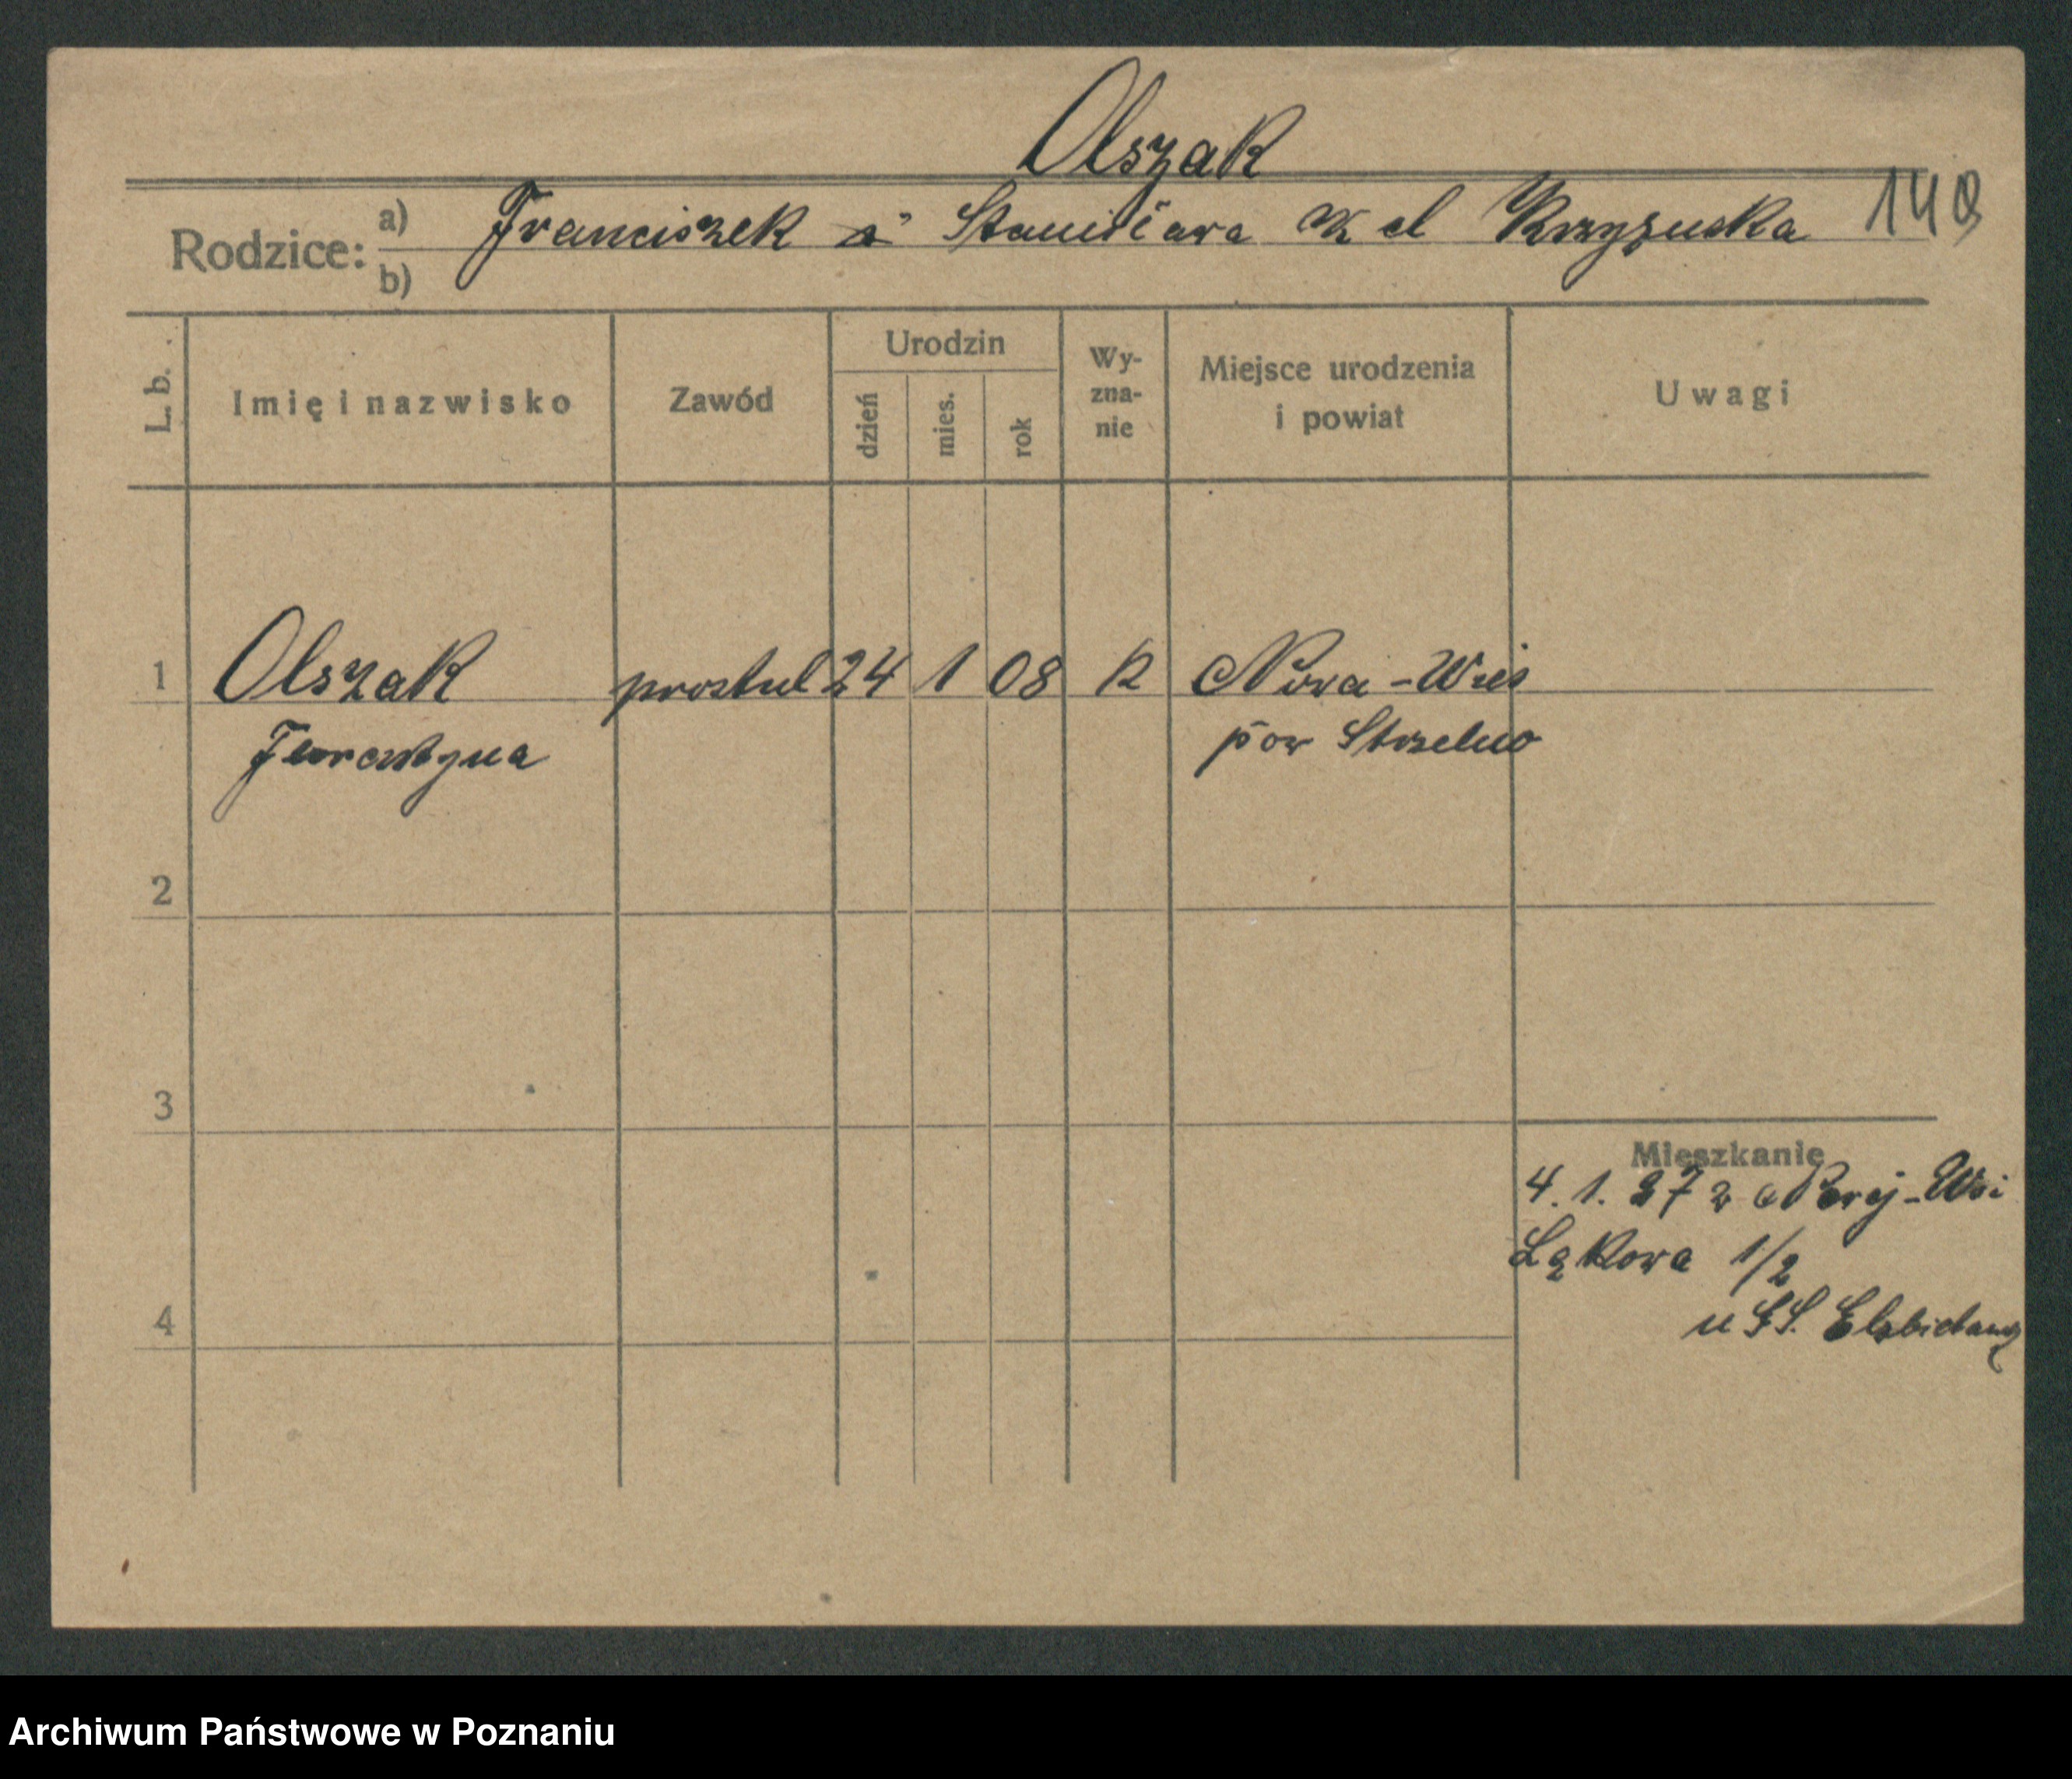 Olszak
Rodzice: a) Franciszek i Stanisława z d Krzyżucka 140
b)
L. b. Imię i nazwisko Zawód Urodzin dzień mies. rok Wy-zna-nie Miejsce urodzenia i powiat Uwagi
1 Olszak postul 24 1 08 K Nowa-Wieś
pow Strzelno
2
3
Mieszkanie
4. 1. 27 z Nowej-Wsi
Łąkowa 1/2
4
u SS. Elżbietanq
Archiwum Państwowe w Poznaniu